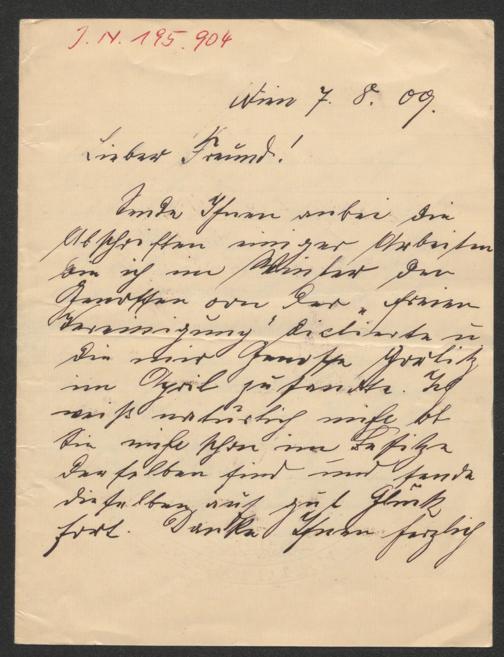 J. N. 195.904
Wien 7. 8. 09.
Lieber Freund!
Sende Ihnen anbei die
Abschriften einiger Arbeiten
die ich im Winter den
Genossen von der „freien
Vereinigung" dictierte u
die mir Genosse Görlitz
im April zusandte. Ich
weiß natürlich nicht ob
Sie nicht schon im Besitze
derselben sind und sende
dieselben auf gut Glück
fort. Danke Ihnen herzlich